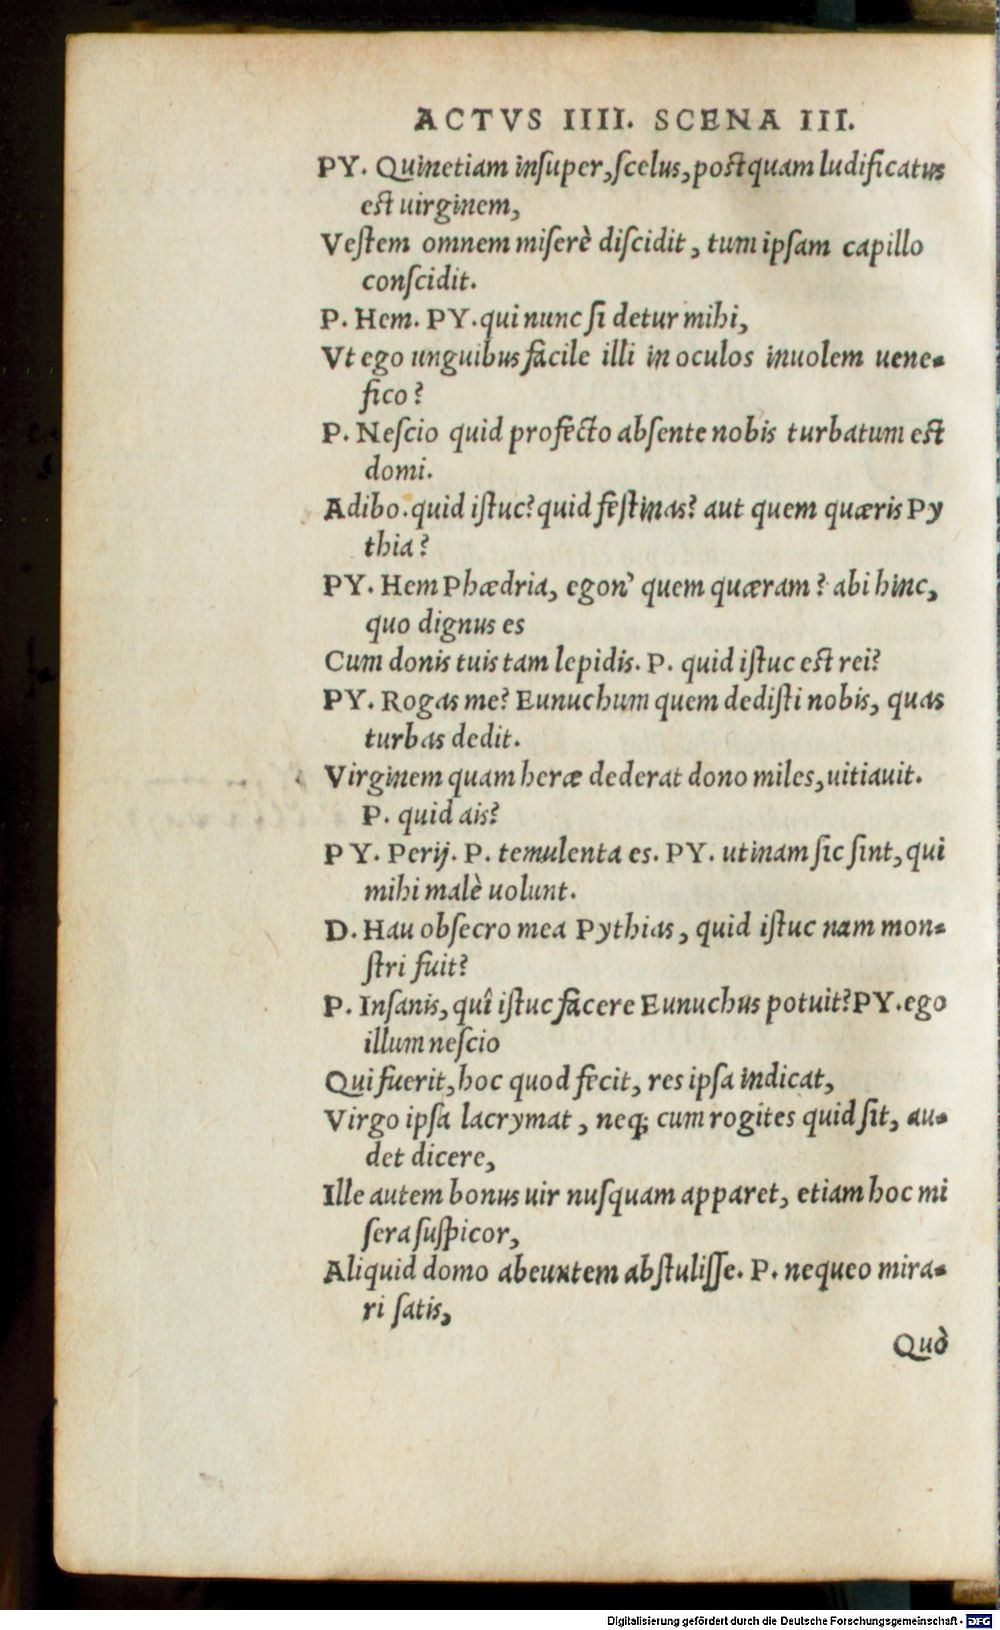 ACTVS IIII. SCENA III.
PY. Quinetiam inſuper,ſcelus,postquam ludificatus
est uirginem,
Veſtem omnem miſerè diſcidit, tum ipſam capillo
conſcidit.
P. Hem. PY.qui nunc ſi detur mihi,
Vt ego unguibus facile illi in oculos inuolem uene-
fico?
P. Neſcio quid profecto abſente nobis turbatum est
domi.
Adibo.quid iſtuc?quid feſtinas? aut quem quæris Py
thia?
PY. Hem Phædria, egon' quem quæram? abi hinc,
quo dignus es
Cum donis tuis tam lepidis. P. quid iſtuc est rei?
PY. Rogas me? Eunuchum quem dediſti nobis, quas
turbas dedit.
Virginem quam heræ dederat dono miles,uitiauit.
P. quid ais?
PY. Perij. P. temulenta es. PY. utinam ſic ſint,qui
mihi malè uolunt.
D. Hau obſecro mea Pythias, quid iſtuc nam mon-
ſtri fuit?
P. Inſanis,quî iſtuc facere Eunuchus potuit?PY.ego
illum neſcio
Qui fuerit,hoc quod fecit, res ipſa indicat,
Virgo ipſa lacrymat, neq; cum rogites quid ſit, au-
det dicere,
Ille autem bonus uir nuſquam apparet, etiam hoc mi
ſera ſuſpicor,
Aliquid domo abeuntem abſtuliſſe. P. nequeo mira-
ri ſatis,
Quò
Digitalisierung gefördert durch die Deutsche Forschungsgemeinschaft - DFG